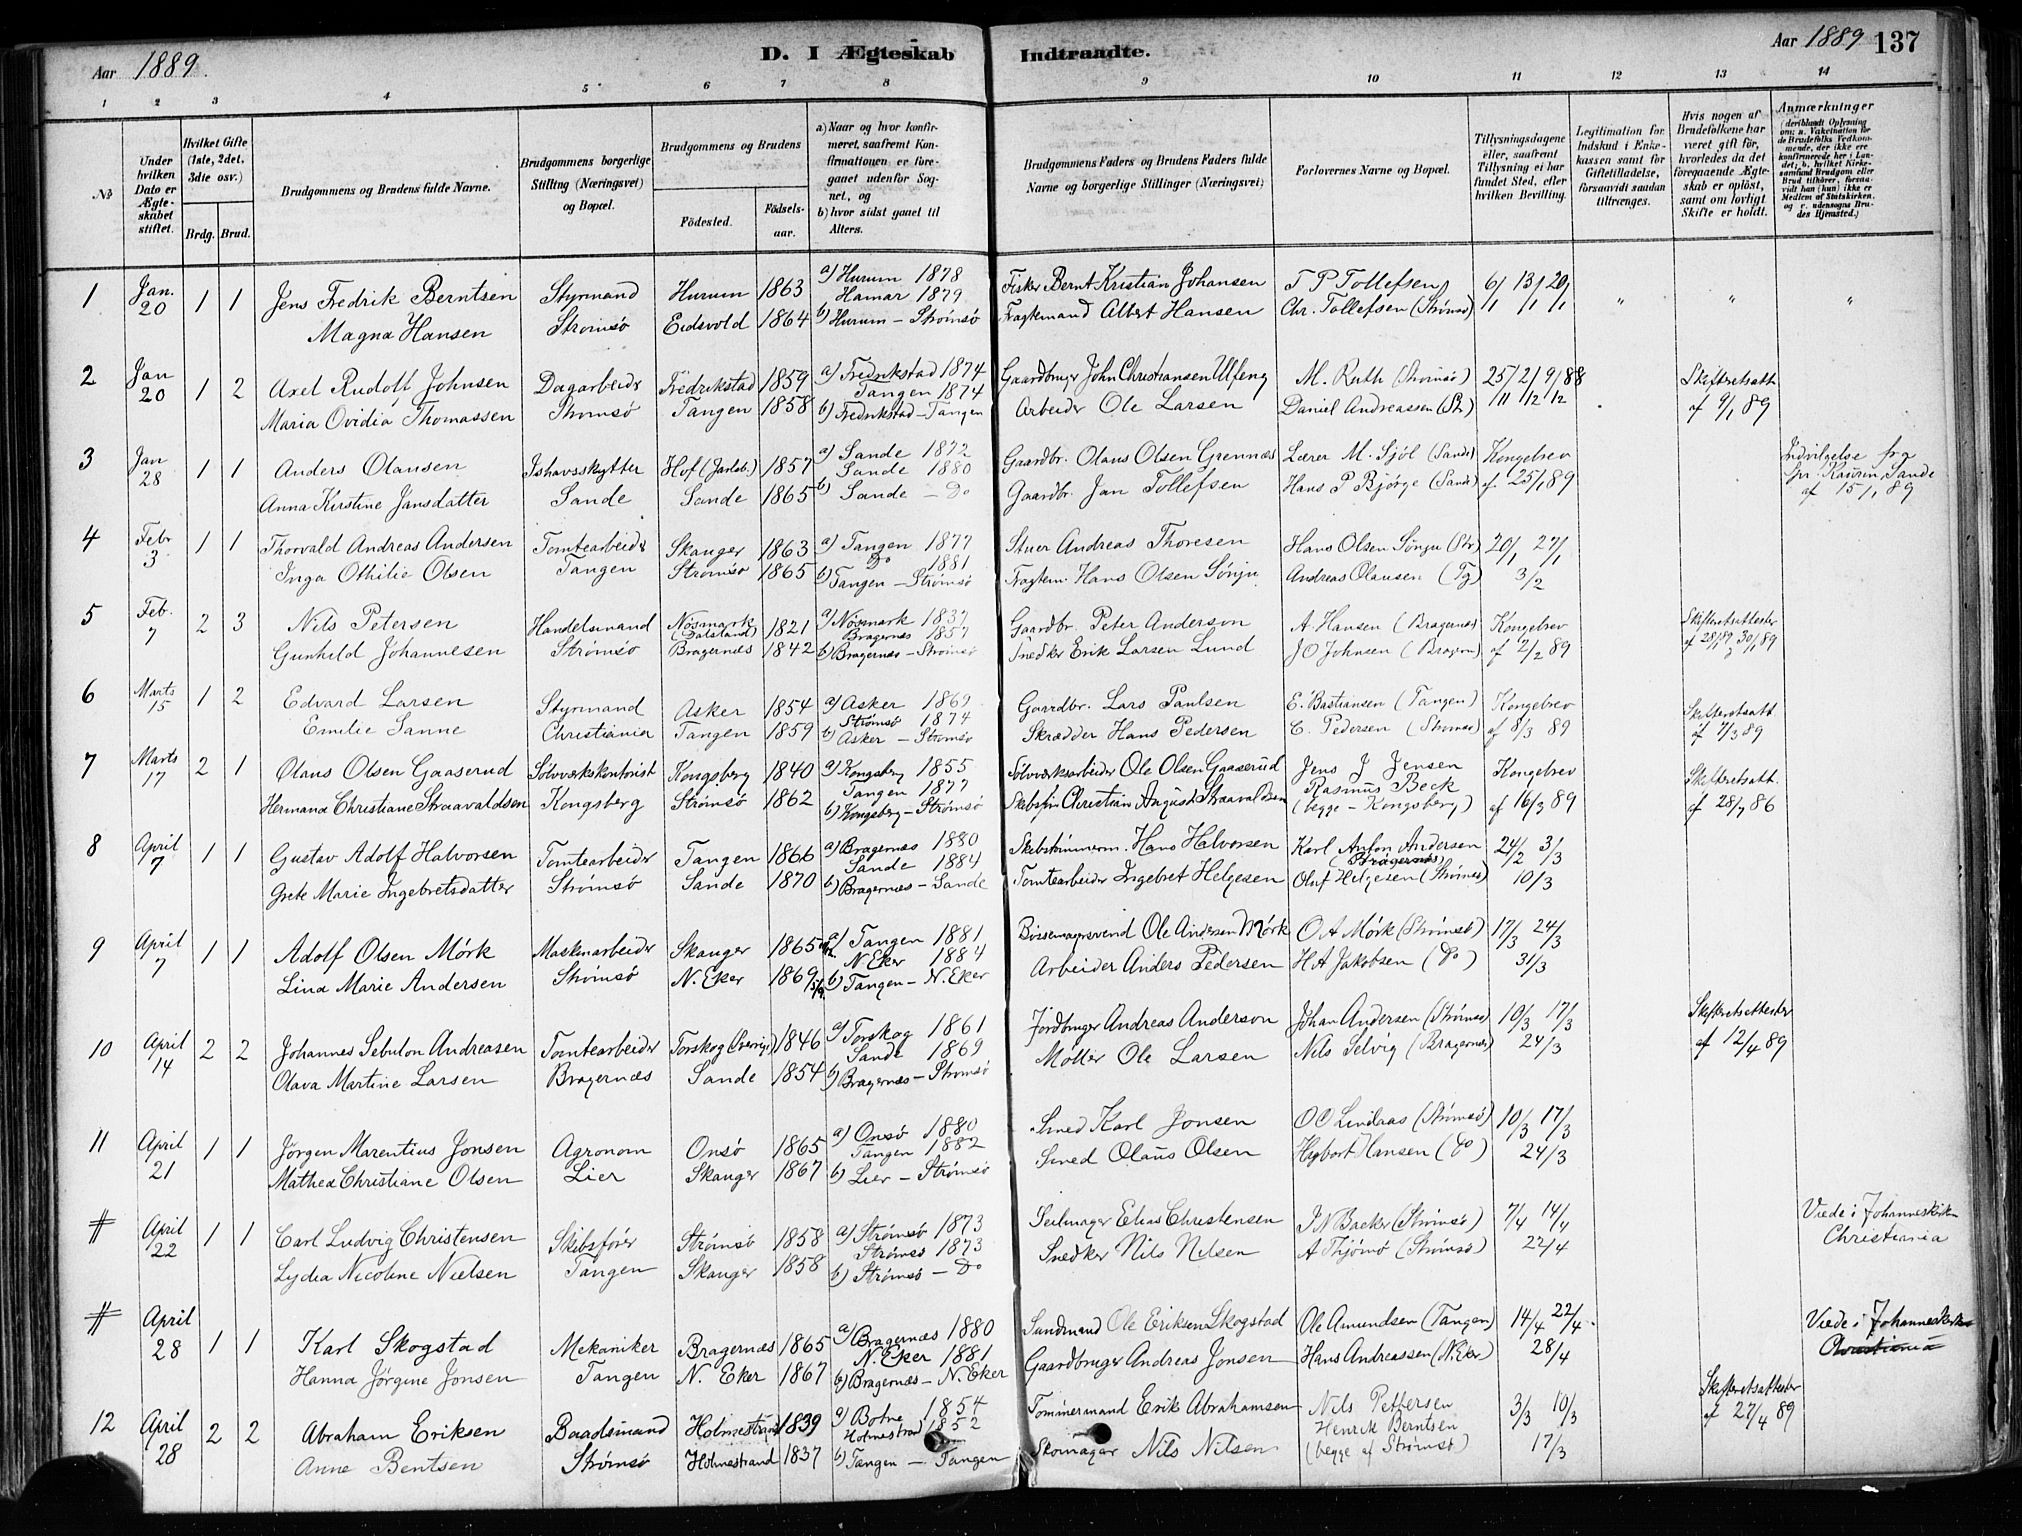 Aar 1889. D. I Ægteskab Indtraadte. Aar 1889 137
1 2 3 4 5 6 7 8 9 10 11 12 13 14
No
Under hvilken Dato er Ægteskabet stiftet.
Hvilket Gifte (1ste, 2det, 3die osv.)
Brdg. Brud.
Brudgommens og Brudens fulde Navne.
Brudgommens borgerlige Stilling (Næringsvei) og Bopæl.
Brudgommens og Brudens
Fødested. Fødselsaar.
a) Naar og hvor konfirmeret, saafremt Konfirmationen er foregaaet udenfor Sognet, og
b) hvor sidst gaaet til Alters.
Brudgommens Faders og Brudens Faders fulde Navne og borgerlige Stillinger (Næringsvei)
Forlovernes Navne og Bopæl.
Tillysningsdagene eller, saafremt Tillysning ei har fundet Sted, efter hvilken Bevilling.
Legitimation for Indskud i Enkekassen samt for Giftetilladelse, forsaavidt saadan tiltrænges.
Hvis nogen af Brudefolkene har været gift før, hvorledes da det foregaaende Ægteskab er opløst, samt om lovligt Skifte er holdt.
Anmærkninger
1 Jan. 20 1 1 Jens Fredrik Berntsen Styrmand Hurum 1863 a) Hurum 1878 Fisker Bernt Kristian Johansen T P Tollefsen 6/1 13/1 20/1 " " "
Magna Hansen Strømsø Eidsvold 1864 Hamar 1879 b) Hurum – Strømsø Fragtemand Albert Hansen Chr. Tollefsen (Strømsø)
2 Jan 20 1 2 Axel Rudolf Johnsen Dagarbeider Fredrikstad 1859 a) Fredrikstad 1874 Gaardbruger John Christiansen Ulfeng M. Ruth (Strømsø) 25/11 2/12 9/12 88 Skifteretsatt af 9/1 89
Maria Ovidia Thomassen Strømsø Tangen 1858 Tangen 1874 b) Fredrikstad – Tangen Arbeider Ole Larsen Daniel Andreassen (Str)
3 Jan 28 1 1 Anders Olausen Ishavsskytter Hof (Jarlsb.) 1857 a) Sande 1872 Gaardbr. Olaus Olsen Grennæs Lærer M. Sjöl (Sande) Kongebrev Indvilgelse fra Spr. Kaurin, Sande af 15/1 89
Anna Kirstine Jansdatter Sande Sande 1865 Sande 1880 b) Sande – Do Gaardbr. Jan Tollefsen Hans P Bjørge (Sande) af 25/1 89
4 Febr 3 1 1 Thorvald Andreas Andersen Tomtearbeider Skanger 1863 a) Tangen 1877 Stuer Andreas Thoresen Hans Olsen Sønju (Str) 20/1 27/1
Inga Othilie Olsen Tangen Strømsø 1865 Do 1881 b) Tangen – Strømsø Fragtem. Hans Olsen Sønju Andreas Olausen (Tg) 3/2
5 Feb. 7 2 3 Nils Petersen Handelsmand Nösmark (Dalsland) 1821 a) Nösmark 1837 Gaardbr. Peter Anderson A. Hansen (Bragernæs) Kongebrev Skifteretsattester af 28/1 89 & 30/1 89
Gunhild Johannesen Strømsø Bragernæs 1842 Bragernæs 1857 b) Bragernæs – Strømsø Snedker Erik Larsen Lund J O Johnsen (Bragern) af 2/2 89
6 Marts 15 1 2 Edvard Larsen Styrmand Asker 1854 a) Asker 1869 Gaardbr. Lars Paulsen E. Bastiansen (Tangen) Kongebrev Skifteretsatt af 7/3 89
Emilie Sanne Christiania Tangen 1859 Strømsø 1874 b) Asker – Strømsø Skrædder Hans Pedersen E. Pedersen (Strømsø) af 8/3 89
7 Marts 17 2 1 Olaus Olsen Gaaserud Sølvværkskontorist Kongsberg 1840 a) Kongsberg 1855 Sølvværksarbeider Ole Olsen Gaaserud Jens J Jensen Kongebrev Skifteretsatt. af 28/7 86
Hermana Christiane Straavaldsen Kongsberg Strømsø 1862 Tangen 1877 b) Kongsberg – Strømsø Skibsfür Christian August Straavaldsen Rasmus Beck (begge – Kongsberg) af 16/3 89
8 April 7 1 1 Gustav Adolf Halvorsen Tomtearbeider Tangen 1866 a) Bragernæs 1880 Skibstömmerm. Hans Halvorsen Karl Anton Andersen (Bragernæs) 24/2 3/3
Grete Marie Ingebretsdatter Strømsø Sande 1870 Sande 1884 b) Bragernæs – Sande Tomtearbeider Ingebret Helgesen Oluf Helgesen (Strømsø) 10/3
9 April 7 1 1 Adolf Olsen Mörk Maskinarbeider Skanger 1865 a) Tangen 1881 Bössemagersvend Ole Andersen Mörk O A Mörk (Strømsø) 17/3 24/3
Lina Marie Andersen Strømsø N. Eker 1869 N Eker 1884 b) Tangen – N. Eker Arbeider Anders Pedersen H A Jakobsen (Do) 31/3
10 April 14 2 2 Johannes Sebulon Andreasen Tomtearbeider Torskog (Sverige) 1846 a) Torskog 1861 Jordbruger Andreas Anderson Johan Andersen (Strømsø) 10/3 17/3 Skifteretsattester af 12/4 89
Olava Martine Larsen Bragernæs Sande 1854 Sande 1869 b) Bragernæs – Strømsø Møller Ole Larsen Nils Selvig (Bragernæs) 24/3
11 April 21 1 1 Jørgen Marentius Jonsen Agronom Onsø 1865 a) Onsø 1880 Smed Karl Jonsen O O Lindaas (Strømsø) 10/3 17/3
Mathea Christiane Olsen Lier Skanger 1867 Tangen 1882 b) Lier – Strømsø Smed Olaus Olsen Hegbart Hansen (Do) 24/3
# April 22 1 1 Carl Ludvig Christensen Skibsfører Strømsø 1858 a) Strømsø 1873 Seilmager Elias Christensen J N Backer (Strømsø) 7/4 14/4 Viede i Johanneskirken Christiania
Lydia Nicoline Nielsen Tangen Skanger 1858 Strømsø 1873 b) Strømsø – Do Snedker Nils Nilsen A Thjömö (Strømsø) 22/4
# April 28 1 1 Karl Skogstad Mekaniker Bragernæs 1865 a) Bragernæs 1880 Sandmand Ole Eriksen Skogstad Ole Amundsen (Tangen) 14/4 22/4 Viede i Johanneskirke Christiania
Hanna Jørgine Jonsen Tangen N. Eker 1867 N. Eker 1881 b) Bragernæs – N. Eker Gaardbruger Andreas Jonsen Hans Andreassen (N. Eker) 28/4
12 April 28 2 2 Abraham Eriksen Baadsmand Holmestrand 1839 a) Botne 1854 Tømmermand Erik Abrahamsen Nils Pettersen 3/3 10/3 Skifteretsattester af 27/4 89
Anne Bentsen Strømsø Holmestrand 1837 Holmestrand 1852 b) Tangen – Tangen Skomager Nils Nilsen Henrik Berntsen (begge af Strømsø) 17/3